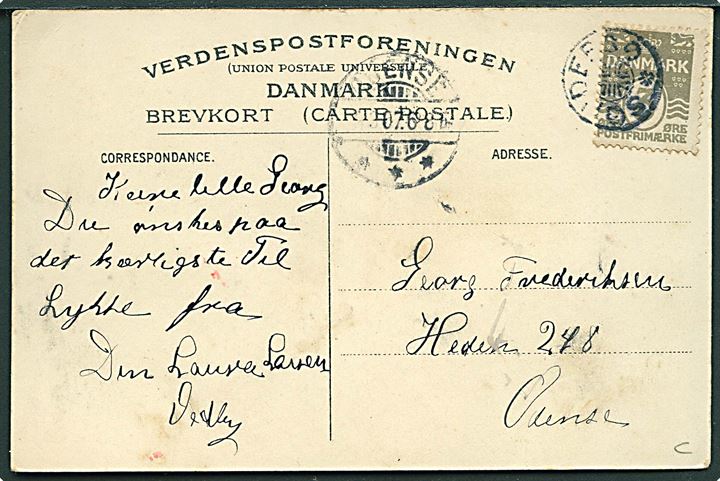 VERDENSPOSTFORENINGEN
(UNION POSTALE UNIVERSELLE)
DANMARK
BREVKORT (CARTE POSTALE.)
CORRESPONDANCE.
ADRESSE.
Kære lille Georg
Du ønskes paa
det kærligste Til
Lykke fra
Din Laura Larsen
Vedby
Georg Frederiksen
Heden 248
Odense
ODENSE
07.6-8
DANMARK
ØRE
POSTFRIMÆRKE
C